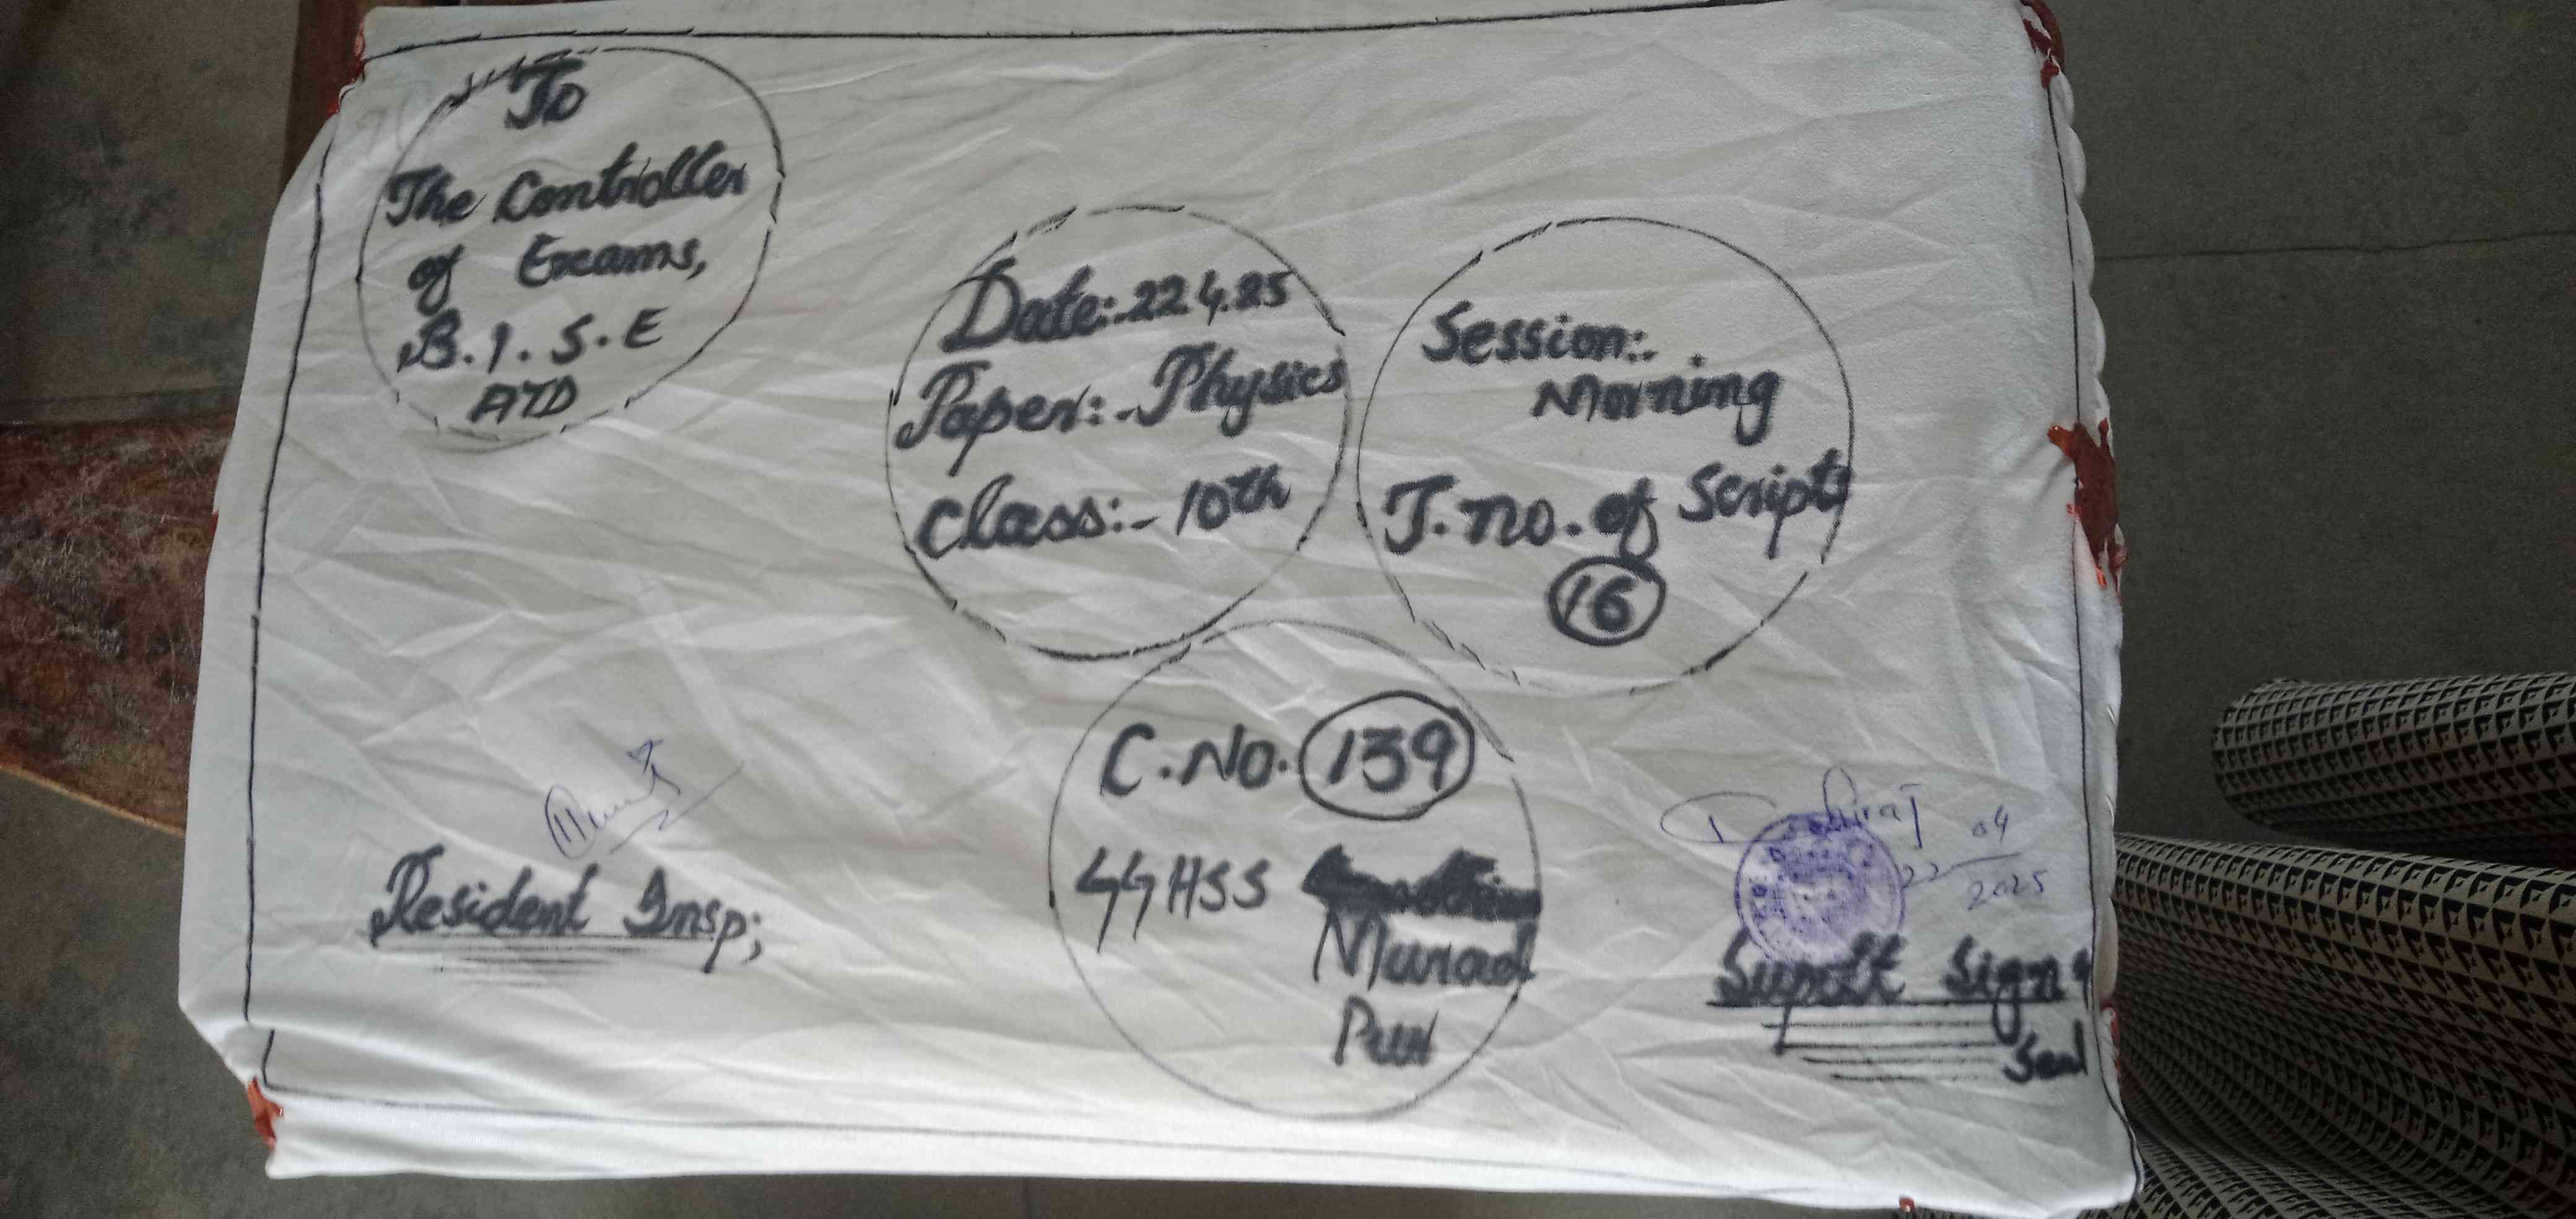 To
The Controller
of Exams,
B.I.S.E
ATD
Date:- 22.4.25
Paper:- Physics
Class:- 10th
Session:-
Morning
T.No. of Scripts
16
C.No. 139
GGHSS
Murad
Pur
Resident Insp;
22/04/2025
Supdtt Sign &
Seal